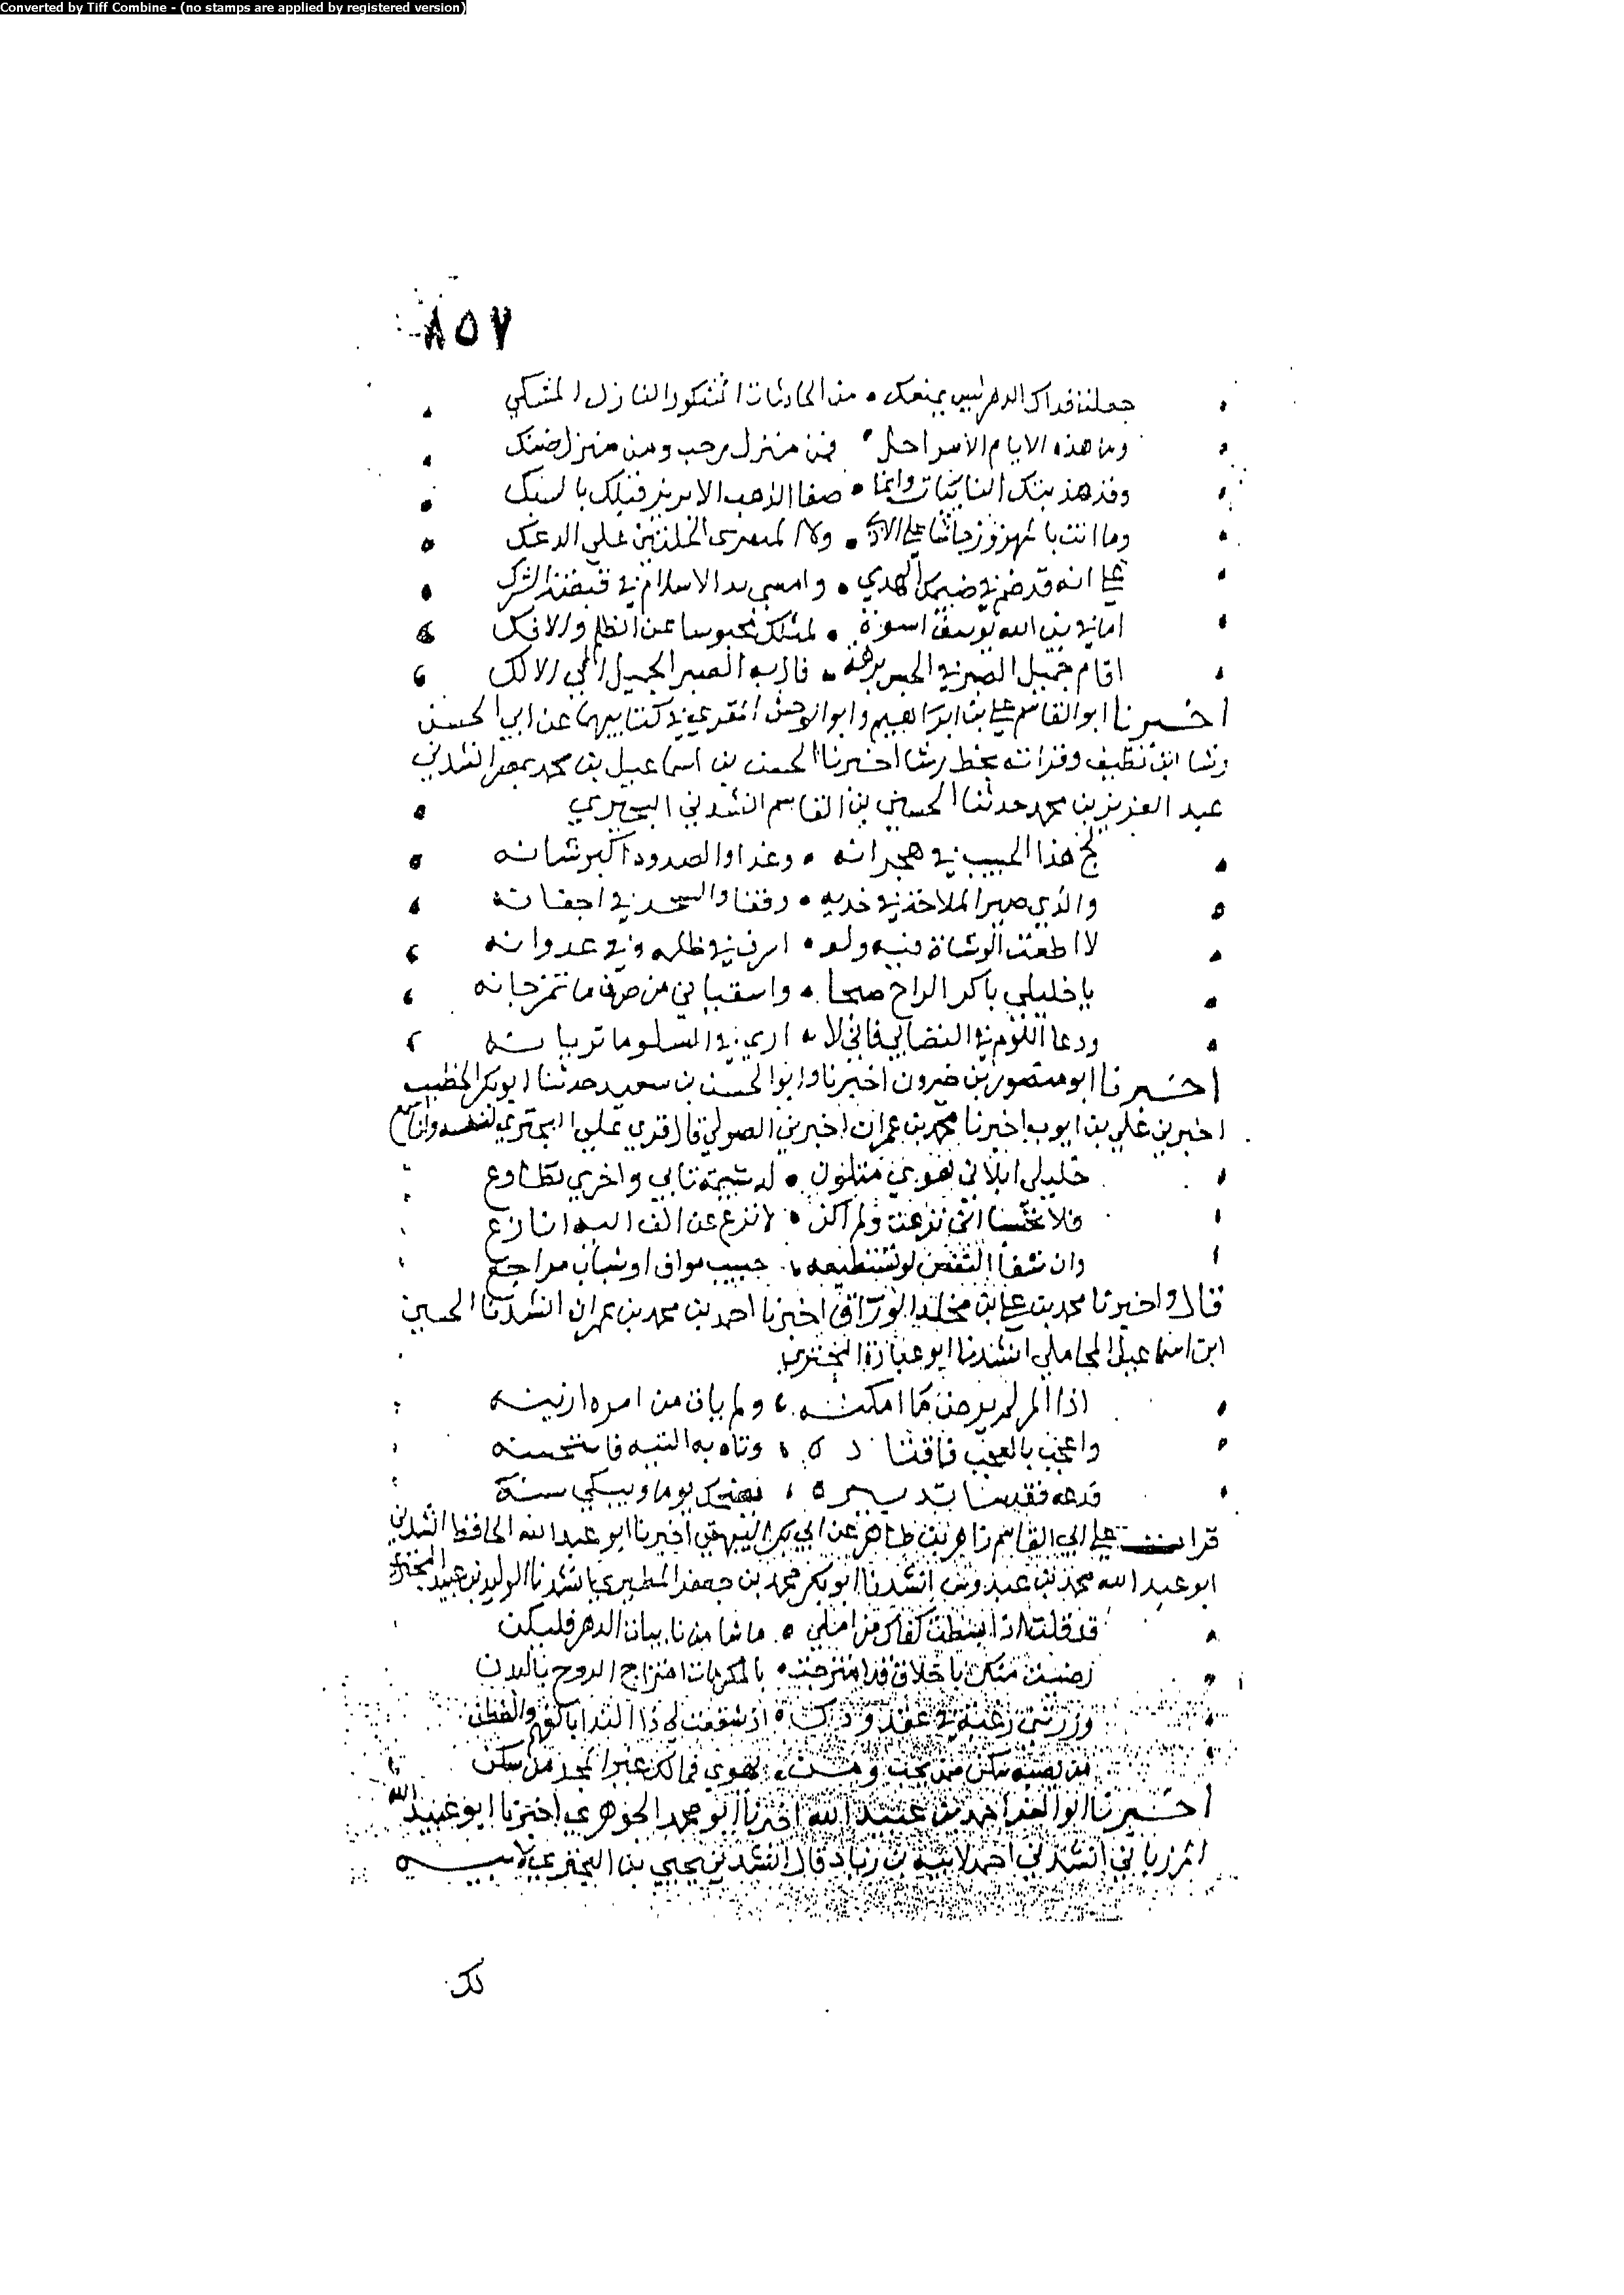 Converted by Tiff Combine - (no stamps are applied by registered version)
٨٥٧
جعلنا فداك الدهر ليس بمنفك • من الحادثات المشكو والنازل المشكي
وما هذه الايام الا مراحل • فمن منزل رحب ومن منزل ضنك
وقد هذبتك النائبات وانما • صفا الذهب الابريز قبلك بالسبك
وما انت بالمهزوز جاشا على الاذى • ولا المتفرى الجلدتين على الدعك
على انه قد ضيم في ضيمك الهدي • وامسى بيد الاسلام في قبضة الشرك
اما في نبي الله يوسف اسوة • لمثلك محبوسا عن الظلم والافك
اقام جميل الصبر في الحبس برهة • فال به الصبر الجميل الى الملك
اخبرنا ابو القاسم علي بن ابراهيم وابو الوحش المقري في كتابيهما عن ابي الحسن
رشا ابن نظيف وقراته بخط رشا اخبرنا الحسن بن اسماعيل بن محمد بمصر انشدني
عبد العزيز بن محمد حدثنا الحسين بن القاسم انشدني البحتري
لج هذا الحبيب في هجرانه • وغدا والصدود اكبر شانه
والذي صير الملاحة في خديه • وقفا والسحر في اجفانه
لا اطعت الوشاة فيه ولو • اسرف في ظلمه وفي عدوانه
يا خليلي باكر الراح صبحا • واسقياني من صرف ما تمزجانه
ودعا اللوم في التصابي فاني لا • ارى في السلو ما تريانه
اخبرنا ابو منصور بن خيرون اخبرنا وابو الحسن بن سعيد حدثنا ابو بكر الخطيب
اخبرني علي بن ايوب اخبرنا محمد بن عمران اخبرني الصولي قال قري على البحتري لنفسه وانا اسمع
خليلي ابلاني هوى متلون • له شيمة تابى واخرى تطاوع
فلا تحسبا اني نزعت ولم اكن • لانزع عن الف اليه انازع
وان شفا النفس لو تستطيعه • حبيب مواف او شباب مراجع
قال واخبرنا محمد بن علي بن مخلد الوراق اخبرنا احمد بن محمد بن عمران انشدنا الحسين
ابن اسماعيل المحاملي انشدنا ابو عبادة البحتري
اذا المر لم يرض ما امكنه • ولم يات من امره ازينه
واعجب بالعجب فاقتاده • وتاه به التيه فاستحسنه
فدعه فقد سا تدبيره • سيضحك يوما ويبكي سنة
قرات على ابي القاسم زاهر بن طاهر عن ابي بكر البيهقي اخبرنا ابو عبد الله الحافظ انشدني
ابو عبد الله محمد بن عبدوس انشدنا ابو بكر محمد بن جعفر المطيري انشدنا الوليد بن عبيد البحتري
قد قلت اذ بسطت كفاك من املي • ما شا من نايبات الدهر فليكن
رضيت منك باخلاق قد امتزجت • بالمكرمات امتزاج الروح بالبدن
وزدتني رغبة في عقد ودك • اذ شفعت لي ذا الندا بالفهم والفطن
يهوي فما لك غير المجد من سكن
اخبرنا ابو العز احمد بن عبيد الله اخبرنا ابو محمد الجوهري اخبرنا ابو عبيد الله
المرزباني انشدني احمد بن زياد قال انشدني يحيى بن البحتري لابيه
لك